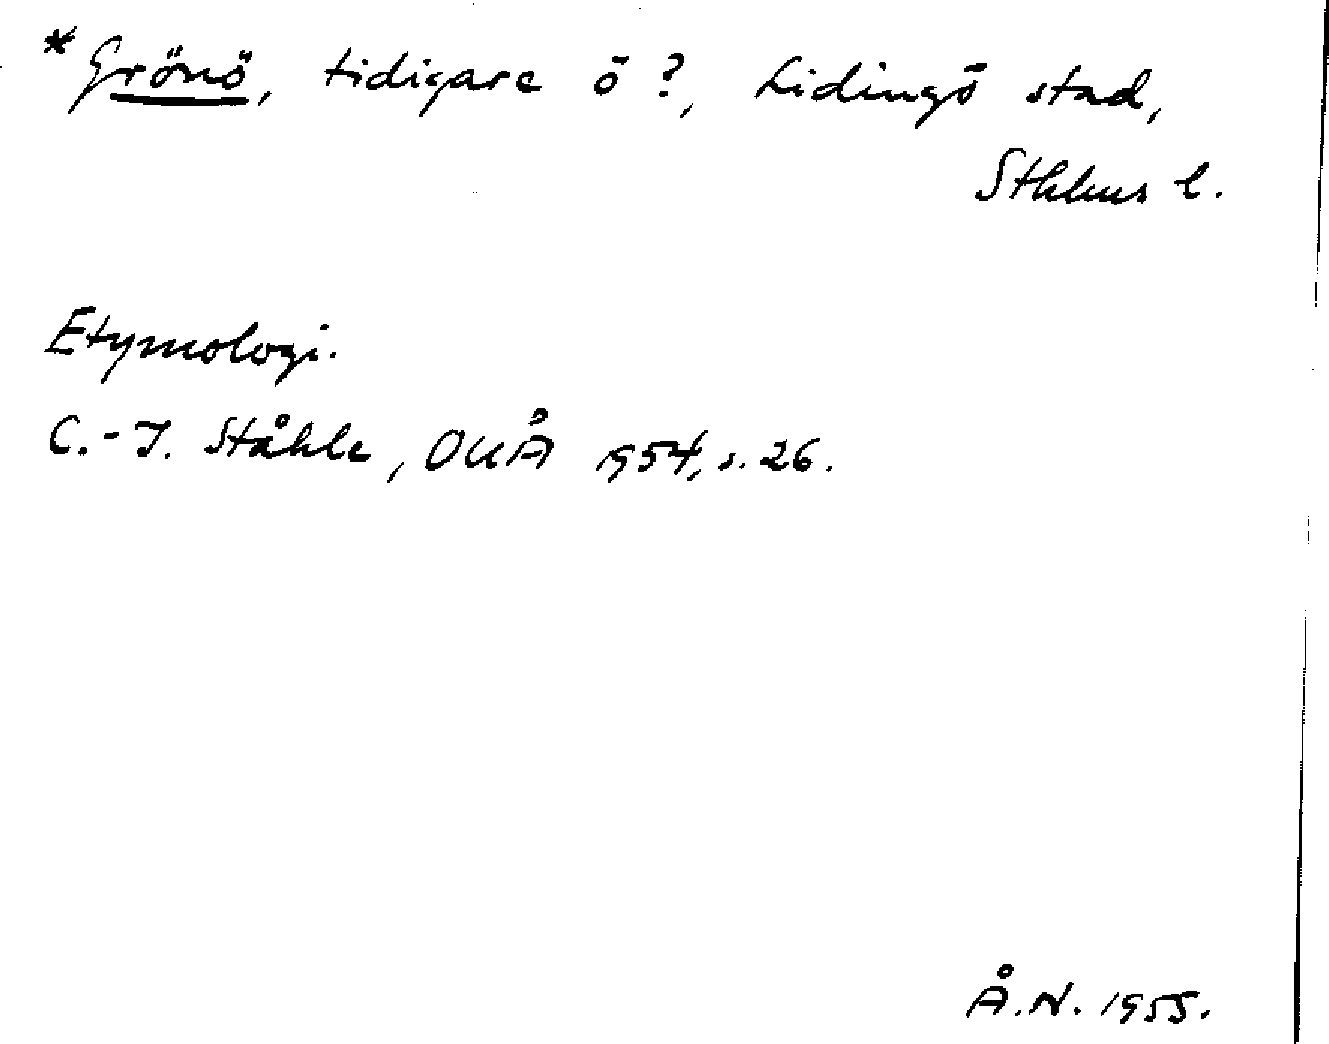 *Grönö, tidigare ö?, Lidingö stad,
Sthlms l.
Etymologi.
C.-I. Ståhle, OUÅ 1954, s. 26.
Å.N. 1955.